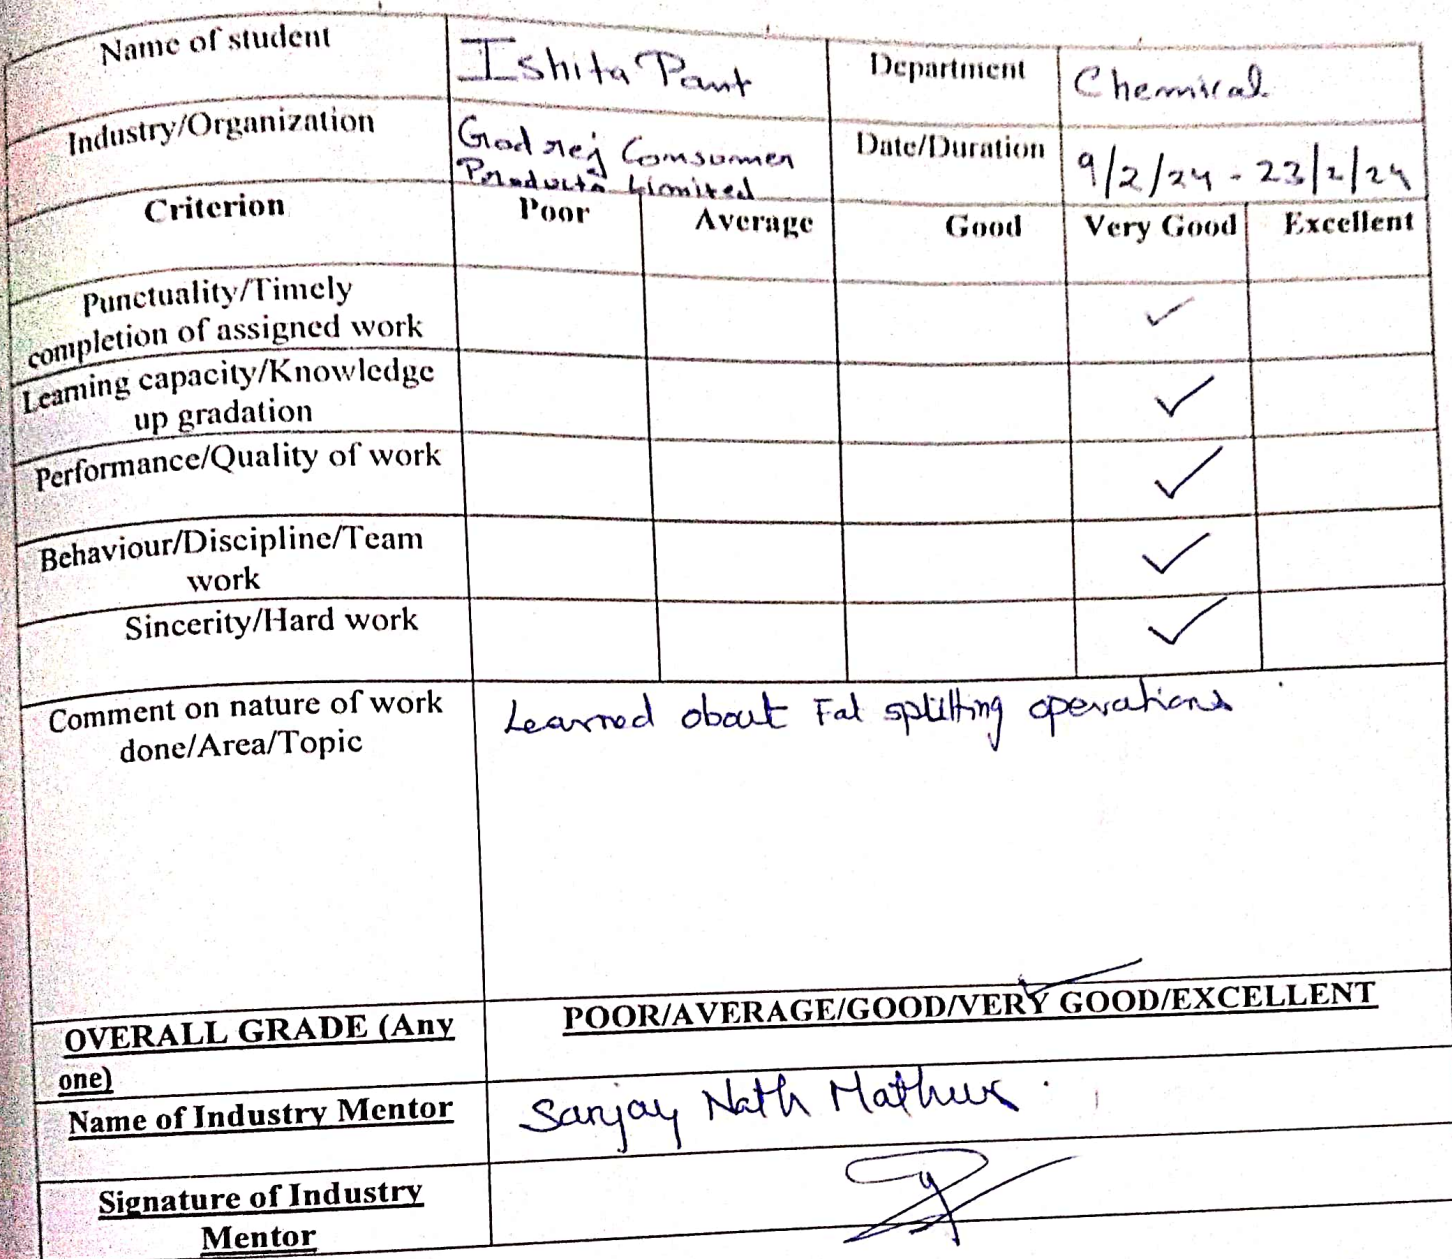 Name of student Ishita Pant Department Chemical
Industry/Organization Godrej Consumer Products Limited Date/Duration 9/2/24 - 23/2/24
Criterion Poor Average Good Very Good Excellent
Punctuality/Timely
completion of assigned work ✓
Learning capacity/Knowledge
up gradation ✓
Performance/Quality of work ✓
Behaviour/Discipline/Team
work ✓
Sincerity/Hard work ✓
Comment on nature of work Learned about Fat splitting operations
done/Area/Topic
OVERALL GRADE (Any POOR/AVERAGE/GOOD/VERY GOOD/EXCELLENT
one)
Name of Industry Mentor Sanjay Nath Mathur
Signature of Industry
Mentor